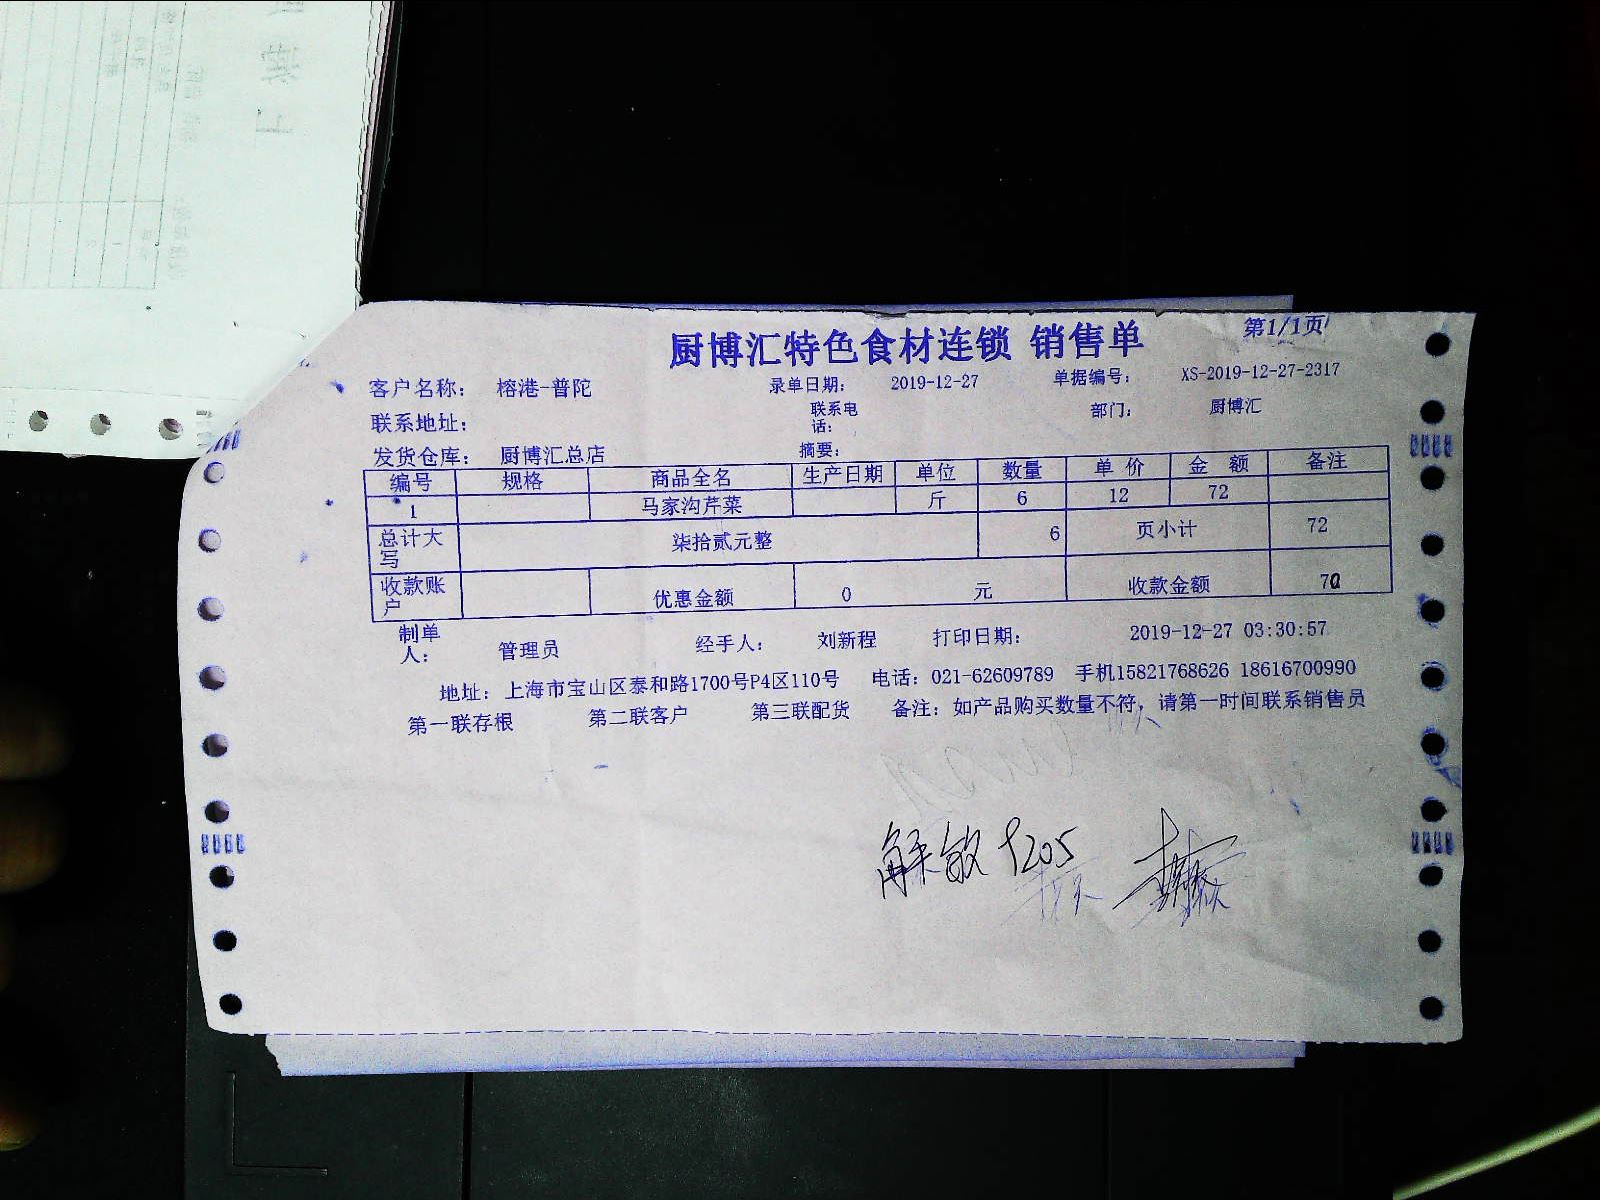 第1/1页
厨博汇特色食材连锁 销售单
客户名称： 榕港-普陀 录单日期： 2019-12-27 单据编号： XS-2019-12-27-2317
联系地址： 联系电话： 部门： 厨博汇
发货仓库： 厨博汇总店 摘要：
编号 规格 商品全名 生产日期 单位 数量 单 价 金 额 备注
1 马家沟芹菜 斤 6 12 72
总计大写 柒拾贰元整 6 页小计 72
收款账户 优惠金额 0 元 收款金额 72
制单人： 管理员 经手人： 刘新程 打印日期： 2019-12-27 03:30:57
地址：上海市宝山区泰和路1700号P4区110号 电话：021-62609789 手机15821768626 18616700990
第一联存根 第二联客户 第三联配货 备注：如产品购买数量不符，请第一时间联系销售员
解敏 9205